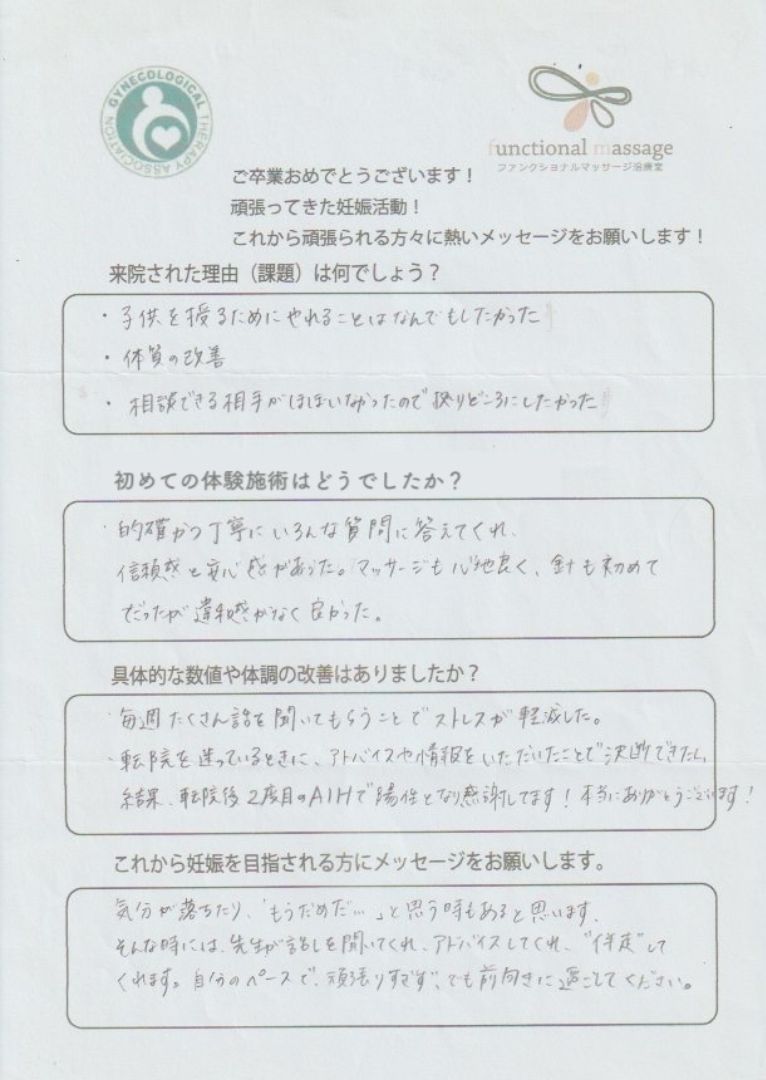 GYNECOLOGICAL THERAPY ASSOCIATION
functional massage
ファンクショナルマッサージ治療室
ご卒業おめでとうございます！
頑張ってきた妊娠活動！
これから頑張られる方々に熱いメッセージをお願いします！
来院された理由（課題）は何でしょう？
・子供を授るためにやれることはなんでもしたかった
・体質の改善
・相談できる相手がほぼいなかったので拠りどころにしたかった
初めての体験施術はどうでしたか？
・的確かつ丁寧にいろんな質問に答えてくれ、
信頼感と安心感があった。マッサージも心地良く、針も初めて
だったが違和感がなく良かった。
具体的な数値や体調の改善はありましたか？
・毎週たくさん話を聞いてもらうことでストレスが軽減した。
・転院を迷っているときに、アドバイスや情報をいただいたことで決断できたし、
結果、転院後2度目のAIHで陽性となり感謝してます！本当にありがとうございます！
これから妊娠を目指される方にメッセージをお願いします。
気分が落ちたり、「もうだめだ…」と思う時もあると思います、
そんな時には、先生が話しを聞いてくれ、アドバイスしてくれ、"伴走"して
くれます。自分のペースで、頑張りすぎず、でも前向きに過ごしてください。